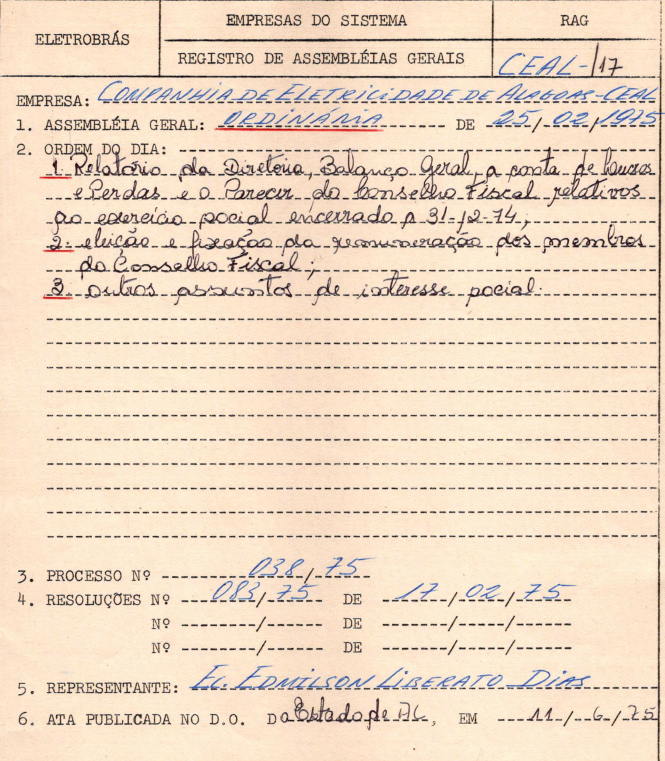 ELETROBRÁS
EMPRESAS DO SISTEMA
RAG
REGISTRO DE ASSEMBLÉIAS GERAIS
CEAL-/17
EMPRESA: COMPANHIA DE ELETRICIDADE DE ALAGOAS-CEAL
1. ASSEMBLÉIA GERAL: ORDINÁRIA DE 25/02/1975
2. ORDEM DO DIA:
1. Relatório da Diretoria, Balanço Geral, a conta de Lucros
e Perdas e o Parecer do Conselho Fiscal relativos
ao exercício social encerrado a 31-12-74;
2. eleição e fixação da remuneração dos membros
do Conselho Fiscal;
3. outros assuntos de interesse social.
3. PROCESSO Nº 038/75
4. RESOLUÇÕES Nº 083/75 DE 17/02/75
Nº ------/------ DE ------/----/----
Nº ------/------ DE ------/----/----
5. REPRESENTANTE: Ec. EDMILSON LIBERATO DIAS
6. ATA PUBLICADA NO D.O. Do Estado de AL, EM 11/6/75